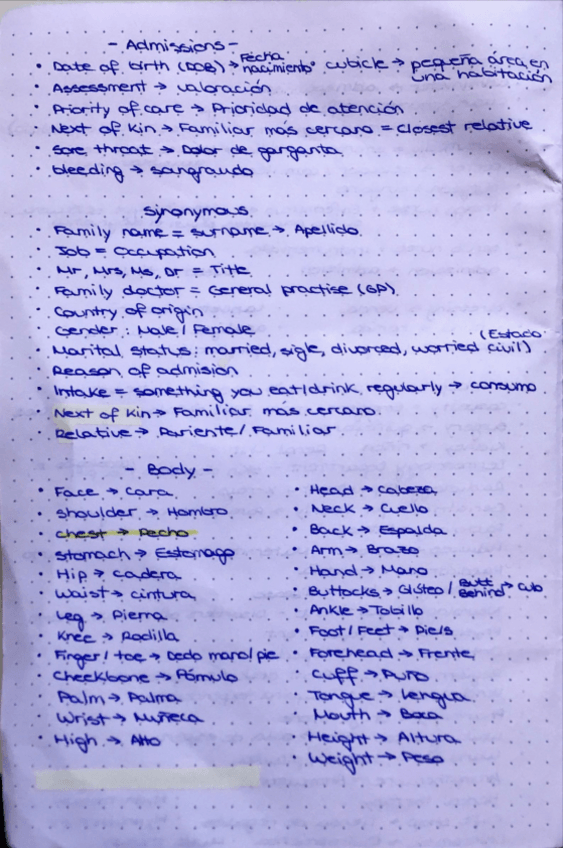 - Admissions -
• Date of birth (DOB) → Fecha nacimiento • cubicle → pequeña área en una habitación
• Assessment → valoración
• Priority of care → Prioridad de atención
• Next of Kin → Familiar más cercaro = closest relative
• Sore throat → Dolor de garganta
• bleeding → sangrando
Synonymous
• Family name = surname → Apellido
• Job = Occupation
• Mr, Mrs, Ms, Dr = Title
• Family doctor = General practise (GP)
• Country of origin
• Gender: Male / Female
• Marital status: married, sigle, divorced, worried (Estado civil)
• Reason of admision
• Intake = something you eat/drink regularly → consumo
• Next of Kin → Familiar más cercaro
• Relative → Pariente / Familiar
- Body -
• Face → Cara
• Shoulder → Hombro
• chest → Pecho
• stomach → Estomago
• Hip → cadera
• Waist → cintura
• Leg → Pierna
• Knee → Rodilla
• Finger / toe → Dedo mano/pie
• Cheekbone → Pómulo
• Palm → Palma
• Wrist → Muñeca
• High → Alto
• Head → Cabeza
• Neck → Cuello
• Back → Espalda
• Arm → Brazo
• Hand → Mano
• Buttocks → Glúteo / Butt Behind → Culo
• Ankle → Tobillo
• Foot / Feet → Pie/s
• Forehead → Frente
• Cuff → Puño
• Tongue → Lengua
• Mouth → Boca
• Height → Altura
• Weight → Peso